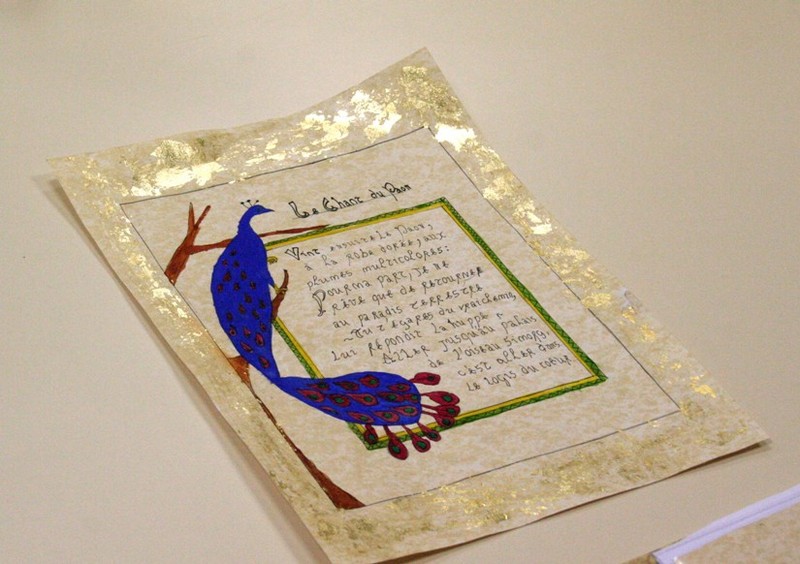 Le Chant du Paon
Vint ensuite le Paon,
à la robe dorée, aux
plumes multicolores:
Pour ma part, je ne
rêve que de retourner
au paradis terrestre
~Tu t'égares du vrai chemin,
lui répondit la huppe :
Aller jusqu'au palais
de l'oiseau Simorg,
c'est aller dans
le logis du coeur